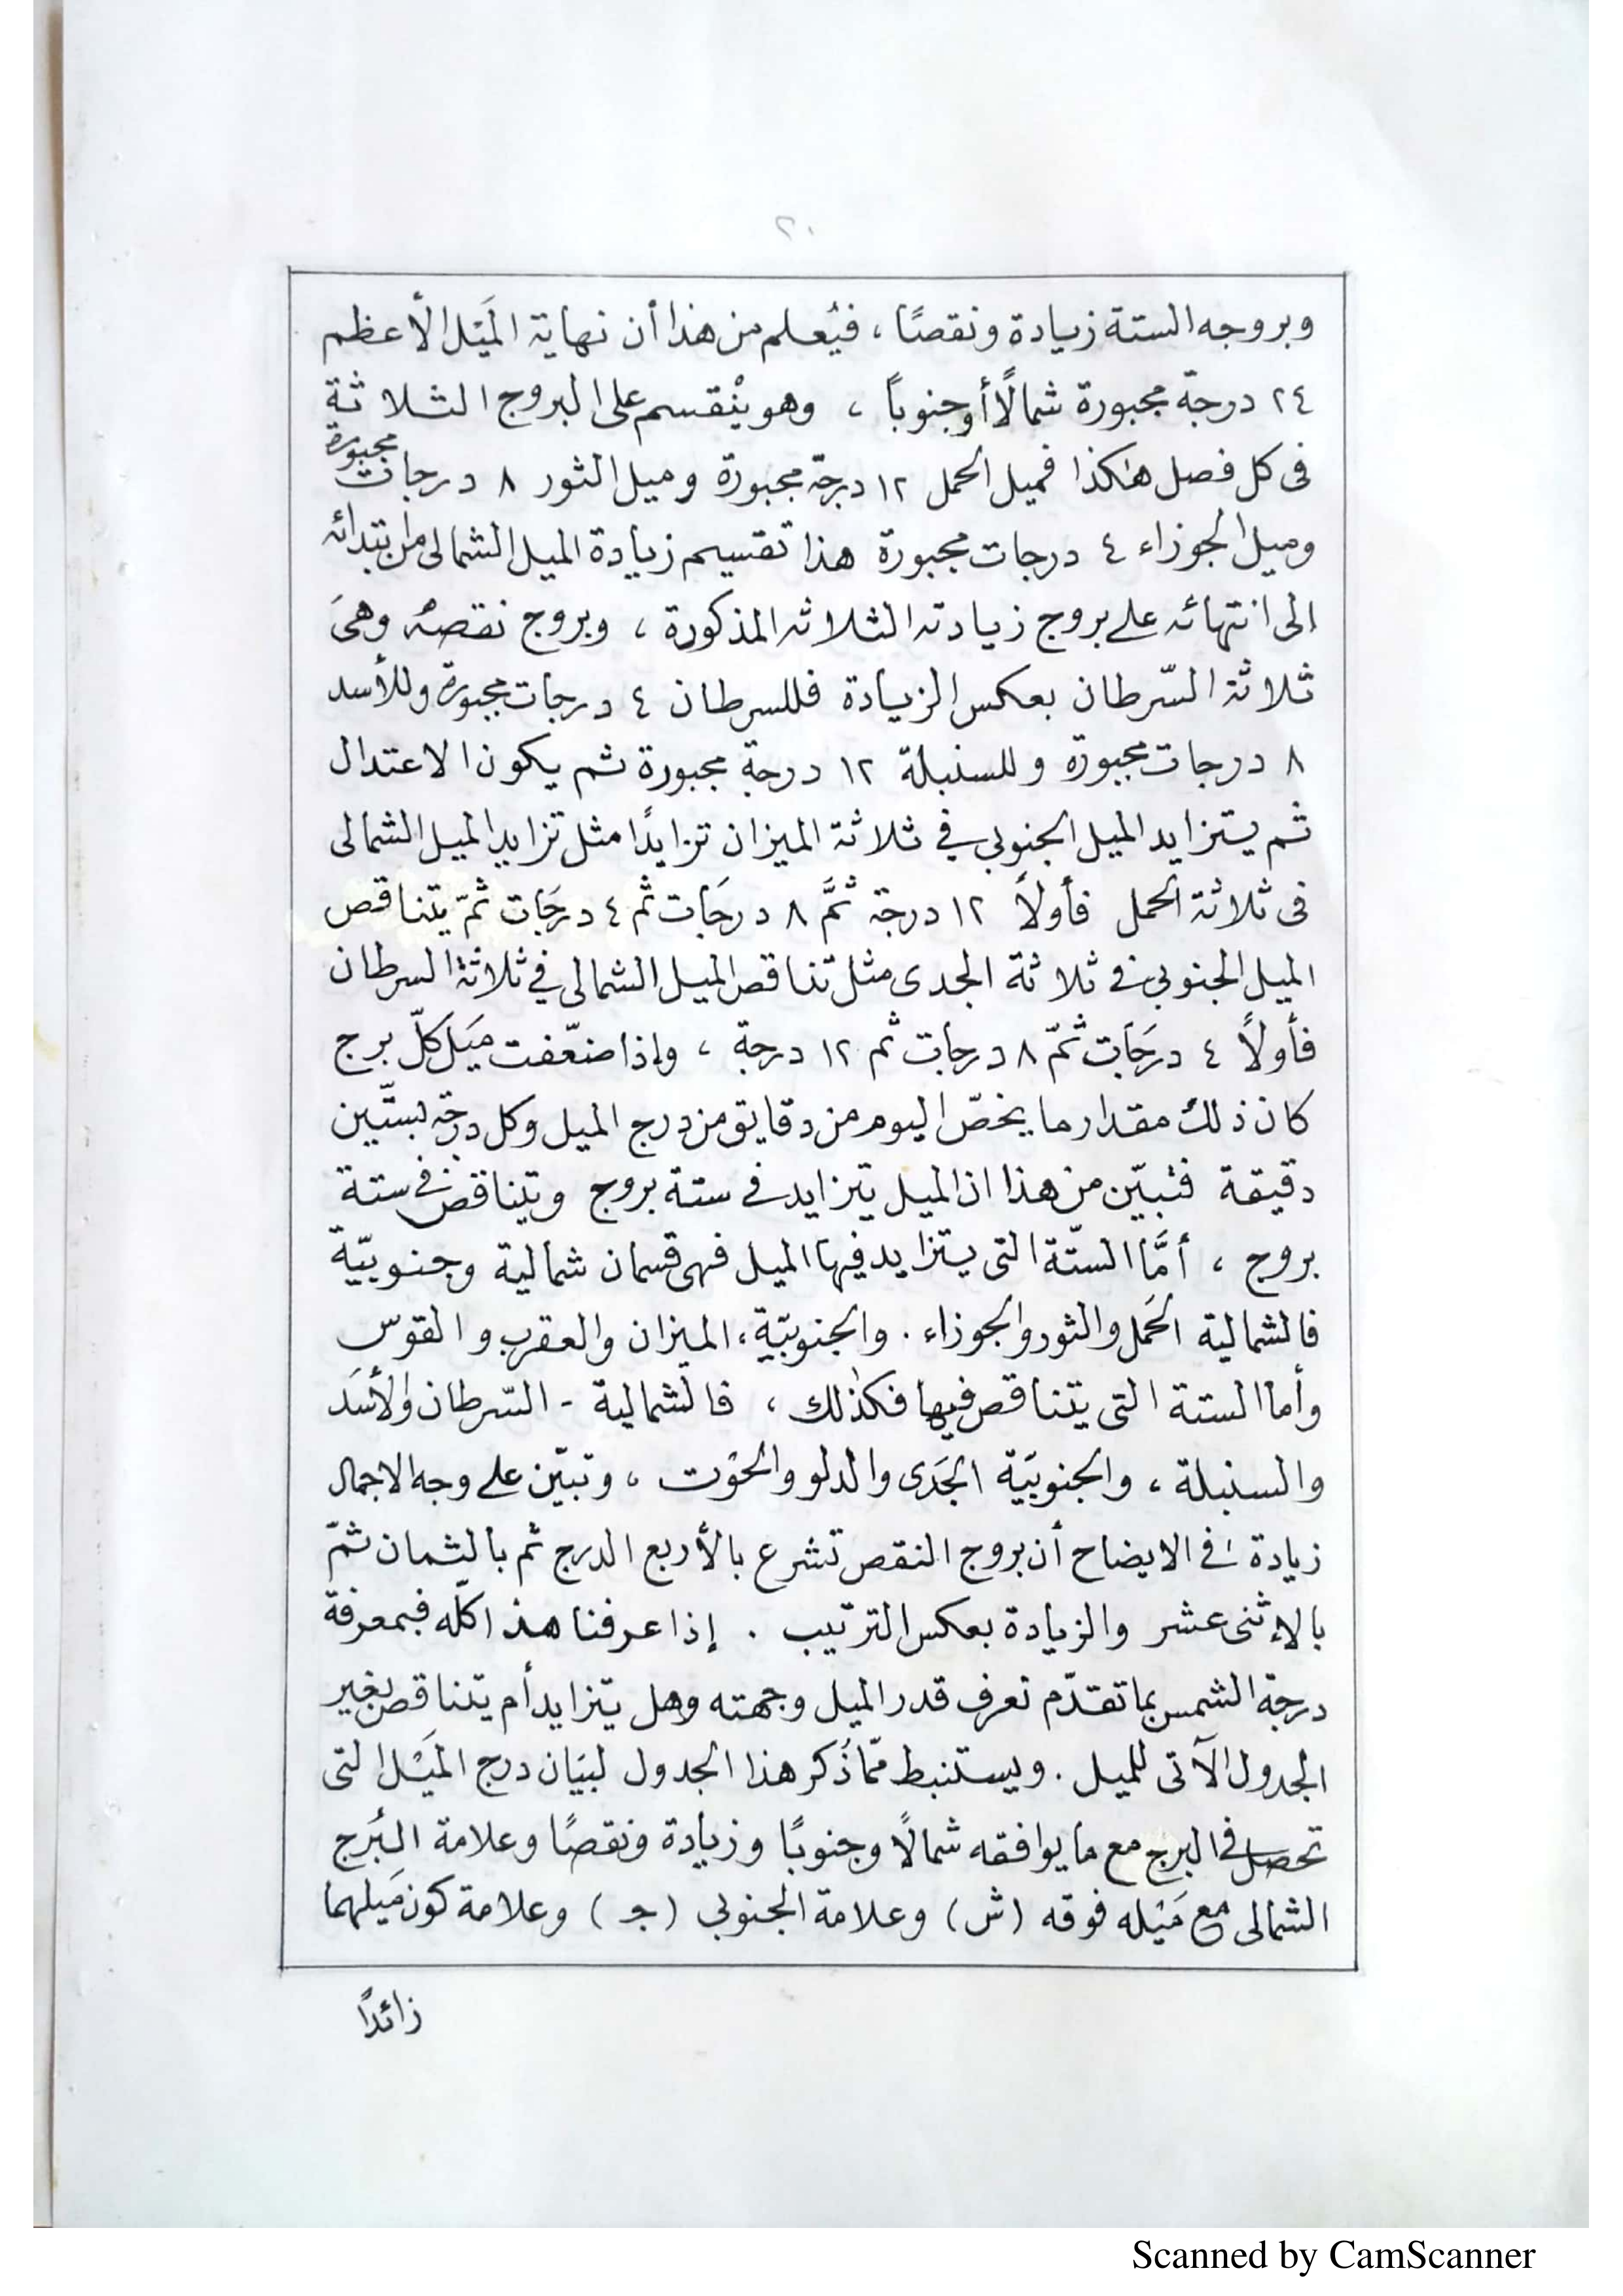 ٢٠
وبروجه الستة زيادة ونقصًا ، فيُعلم من هذا أن نهاية المَيْل الأعظم
٢٤ درجة مجبورة شمالًا أو جنوبًا ، وهو يْنقسم على البروج الثلاثة
فى كل فصل هٰكذا فميل الحمل ١٢ درجة مجبورة وميل الثور ٨ درجات مجبورة
وميل الجوزاء ٤ درجات مجبورة هذا تقسيم زيادة الميل الشمالى من ابتدائه
الى انتهائه على بروج زيادته الثلاثه المذكورة ، وبروج نقصهُ وهىَ
ثلاثة السّرطان بعكس الزيادة فللسرطان ٤ درجات مجبورة وللأسد
٨ درجات مجبورة وللسنبلة ١٢ درجة مجبورة ثم يكون الاعتدال
ثم يتزايد الميل الجنوبي في ثلاثة الميزان تزايدًا مثل تزايد الميل الشمالى
فى ثلاثة الحمل فأولاً ١٢ درجة ثمَّ ٨ درجَات ثم ٤ درجَات ثمّ يتناقص
الميل الجنوبي في ثلاثة الجدى مثل تناقص الميل الشمالى في ثلاثة السرطان
فأولاً ٤ درجَات ثمّ ٨ درجات ثم ١٢ درجة ، وإذا ضعّفت ميَل كلّ برج
كان ذلك مقدار ما يخصّ اليوم من دقايق من درج الميل وكل درجة بستّين
دقيقة فتبيّن من هذا ان الميل يتزايد فى ستة بروج ويتناقص فى ستة
بروج ، أمَّا الستّة التى يتزايد فيها الميل فهى قسمان شمالية وجنوبيّة
فالشمالية الحَمل والثور والجوزاء . والجنوبيّة ، الميزان والعقرب والقوس
وأما الستة التى يتناقص فيها فكذٰلك ، فالشمالية - السّرطان والأسَد
والسنبلة ، والجنوبيَة الجَدى والدلو والحوْت ، وتبيّن على وجه الاجمال
زيادة فى الايضاح أن بروج النقص تشرع بالأربع الدرج ثم بالثمان ثمّ
بالإثنى عشر والزيادة بعكس الترتيب . إذا عرفنا هذا كلّه فبمعرفة
درجة الشمس بما تقدّم نعرف قدر الميل وجهته وهل يتزايد أم يتناقص بغير
الجدول الآتى للميل . ويستنبط ممّا ذُكر هذا الجدول لبيَان درج المَيْل التى
تحصل فى البرج مع ما يوافقه شمالًا وجنوبًا وزيادة ونقصًا وعلامة البُرج
الشمالى مع مَيْله فوقه (ش) وعلامة الجنوبى (جـ) وعلامة كون مَيلهما
زائدًا
Scanned by CamScanner